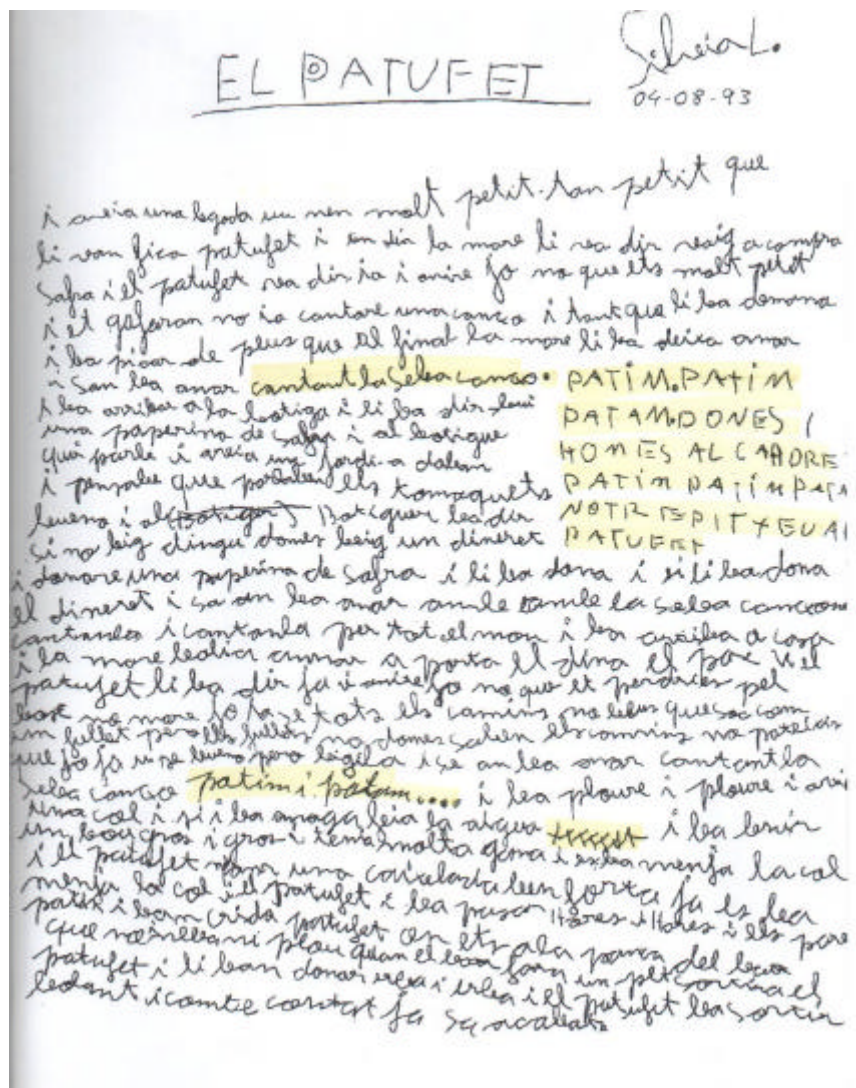 EL PATUFET
Silvia L.
04-08-93
i aveia una begada un nen molt petit. tan petit que
li van fica patufet i un dia la mare li va dir vaig a compra
Safra i el patufet va dir ja i anire jo no que ets molt petit
i et gafaran no ja cantare una canço i tant que li ba demana
i ba picar de peus que al final la mare li ba deixa anar
i San ba anar cantant la Seba canço. PATIM. PATIM
i ba arriba a la botiga i li ba dir bui PATAM. DONES I
una paperina de safra i al botigue HOMES AL CAP DRE
qui parla i aveia un jardi a dalem PATIM PATIM PATA
i pensaba que parlaben els tomaquets NOTR EPITXEU AL
bueno i al (Botiger) Botiguer ba dir PATUFET
Si no beig dingu domes beig un dineret
i donare una paperina de safra i li ba dona i si li ba dona
el dineret i sa an ba anar amb la seba canço
cantanla i cantanla per tot el mon i ba arriba a casa
i la mare bolia anar a porta el dina el pare i el
patufet li ba dir ja i anire jo no que et perdries pel
bosc no mare jo ja se tots els camins no beus que soc com
un fullet pero els fullets no domes saben els camins no pateixis
que jo ja u se bueno pero bigila i se an ba anar cantant la
Seba canço patim i patam.... i ba ploure i ploure i avia
una col i si i ba amaga beia la aigua i ba benir
un bou gros i gros i tenia molta gana i es ba menja la col
i el patufet ben forta ja es ba
menja la col i el patufet i ba pasar Hores i Hores i els pare
patix i ban crida patufet on ets a la panxa del bou
que no i neba ni plou quan el bou fara un pet sortira el
patufet i li ban donar erba i erba i el patufet ba sortir
bolant i conte contat ja sa acabat